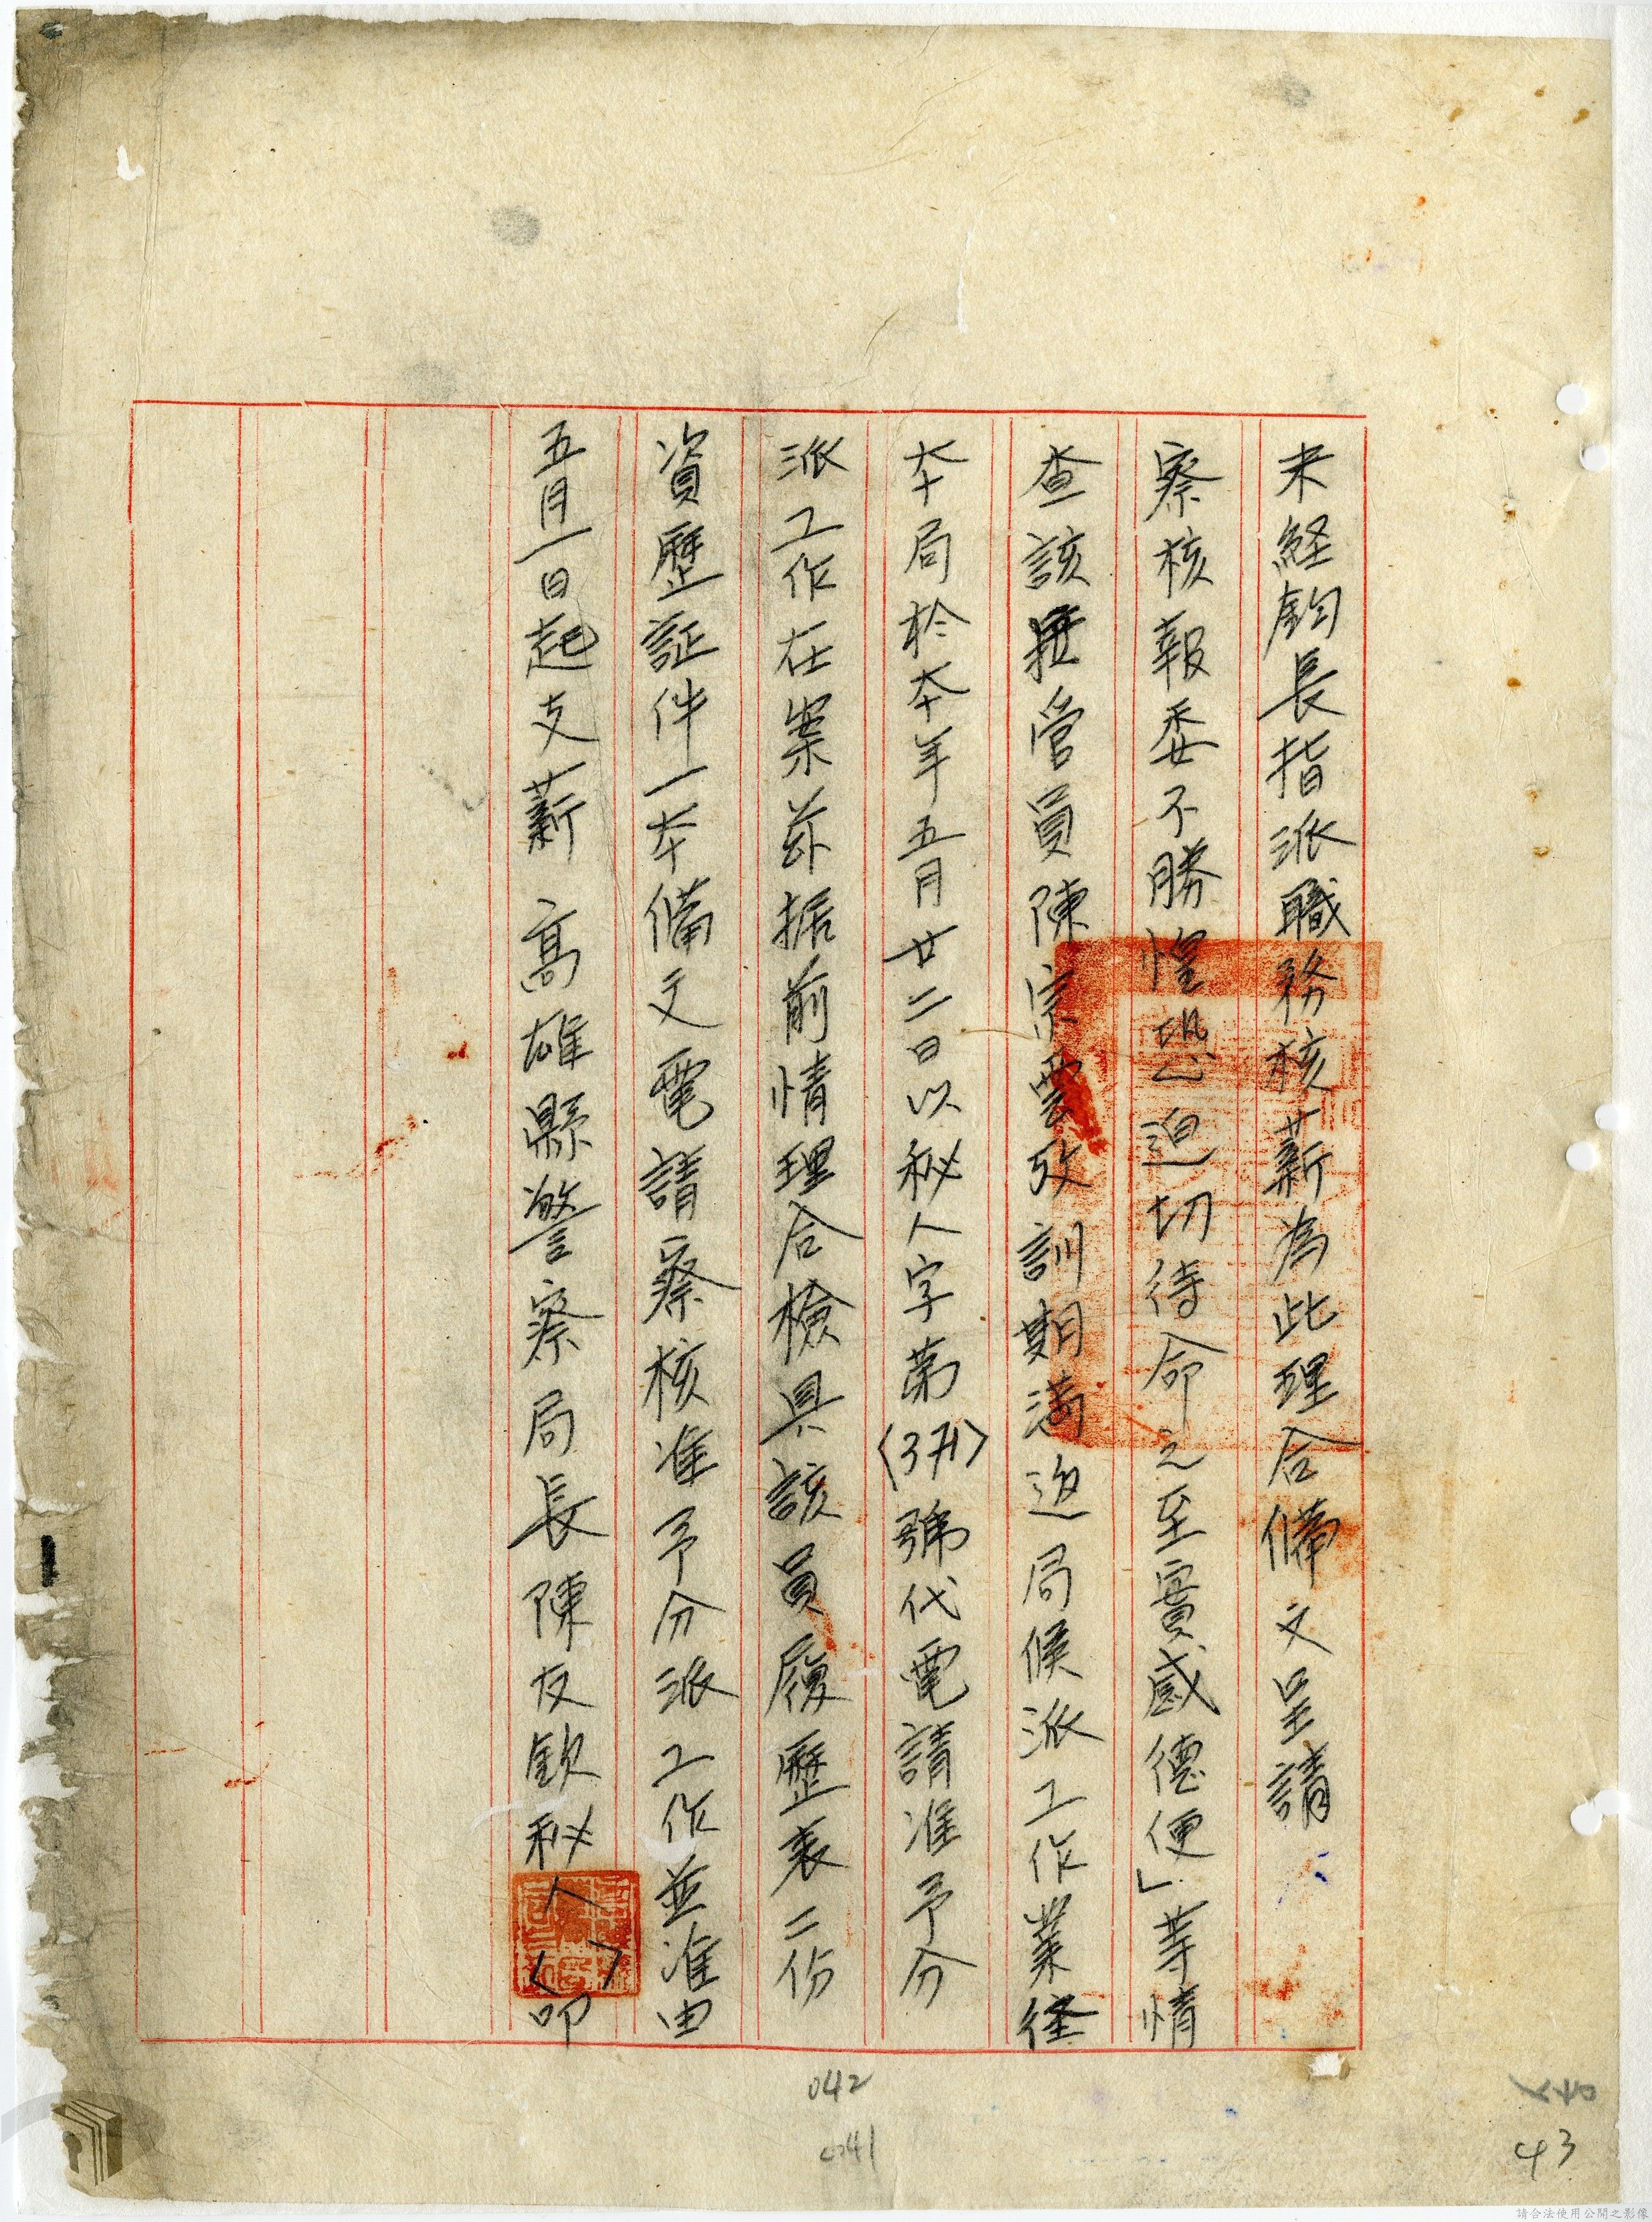 未経鈞長指派職務核薪為此理合備文呈請
察核報委不勝惶恐迫切待命之至實感德便」等情
查該管員陳宗雲攷訓期滿返局候派工作業経
本局於本年五月廿二日以秘人字第〈3771〉號代電請准予分
派工作在案茲据前情理合檢具該員履歷表二份
資歷証件一本備文電請察核准予分派工作並准由
五月一日起支薪 高雄縣警察局長陳友欽秘人〈 〉叩
042
041
43
請合法使用公開之影像